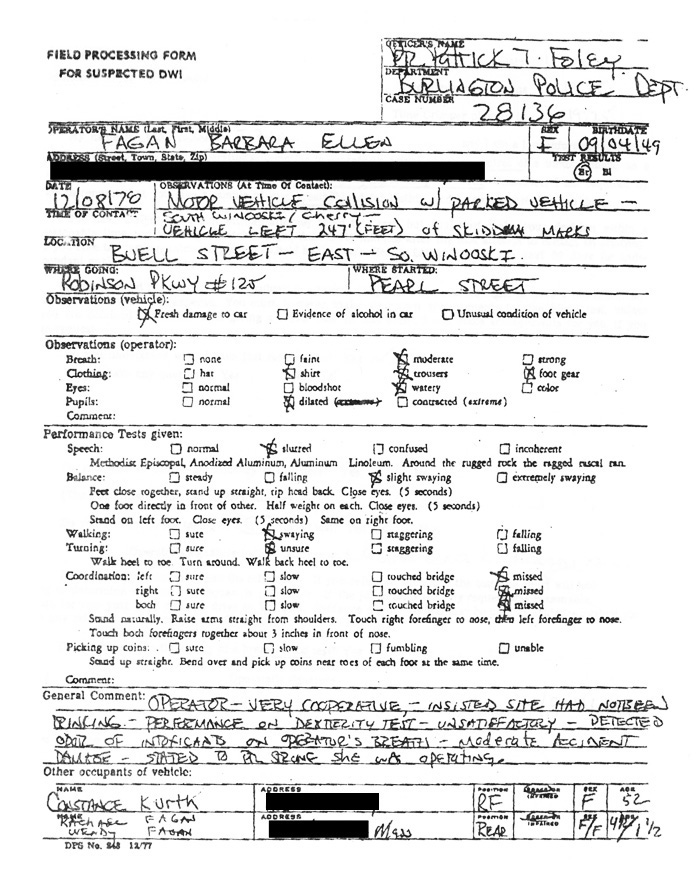 FIELD PROCESSING FORM
FOR SUSPECTED DWI
OFFICER'S NAME
PATRICK T. Foley
DEPARTMENT
BURLINGTON POLICE DEPT.
CASE NUMBER
28136
OPERATOR'S NAME (Last, First, Middle) SEX BIRTHDATE
FAGAN BARBARA ELLEN F 09/04/49
ADDRESS (Street, Town, State, Zip) TEST RESULTS
Br Bl
DATE OBSERVATIONS (At Time Of Contact):
12/08/78 MOTOR VEHICLE COLLISION W/ PARKED VEHICLE -
TIME OF CONTACT SOUTH WINOOSKI / Cherry -
VEHICLE LEFT 247' (FEET) of SKIDDING MARKS
LOCATION
BUELL STREET - EAST - SO. WINOOSKI.
WHERE GOING: WHERE STARTED:
ROBINSON PKWY #125 PEARL STREET
Observations (vehicle):
Fresh damage to car Evidence of alcohol in car Unusual condition of vehicle
Observations (operator):
Breath: none faint moderate strong
Clothing: hat shirt trousers foot gear
Eyes: normal bloodshot watery color
Pupils: normal dilated (extreme) contracted (extreme)
Comment:
Performance Tests given:
Speech: normal slurred confused incoherent
Methodist Episcopal, Anodized Aluminum, Aluminum Linoleum. Around the rugged rock the ragged rascal ran.
Balance: steady falling slight swaying extremely swaying
Feet close together, stand up straight, tip head back. Close eyes. (5 seconds)
One foot directly in front of other. Half weight on each. Close eyes. (5 seconds)
Stand on left foot. Close eyes. (5 seconds) Same on right foot.
Walking: sure swaying staggering falling
Turning: sure unsure staggering falling
Walk heel to toe. Turn around. Walk back heel to toe.
Coordination: left sure slow touched bridge missed
right sure slow touched bridge missed
both sure slow touched bridge missed
Stand naturally. Raise arms straight from shoulders. Touch right forefinger to nose, then left forefinger to nose.
Touch both forefingers together about 3 inches in front of nose.
Picking up coins: sure slow fumbling unable
Stand up straight. Bend over and pick up coins near toes of each foot at the same time.
Comment:
General Comment: OPERATOR - VERY COOPERATIVE - INSISTED SHE HAD NOT BEEN
DRINKING - PERFORMANCE ON DEXTERITY TEST - UNSATISFACTORY - DETECTED
ODOR OF INTOXICANTS ON OPERATOR'S BREATH - Moderate ACCIDENT
DAMAGE - STATED TO STRONG SHE WAS OPERATING.
Other occupants of vehicle:
NAME ADDRESS POSITION SEX AGE
CONSTANCE KURTH RF F 52
NAME ADDRESS POSITION SEX AGE
RACHAEL FAGAN
WENDY FAGAN Mass REAR F/F 4 1/2
DPS No. 12/77